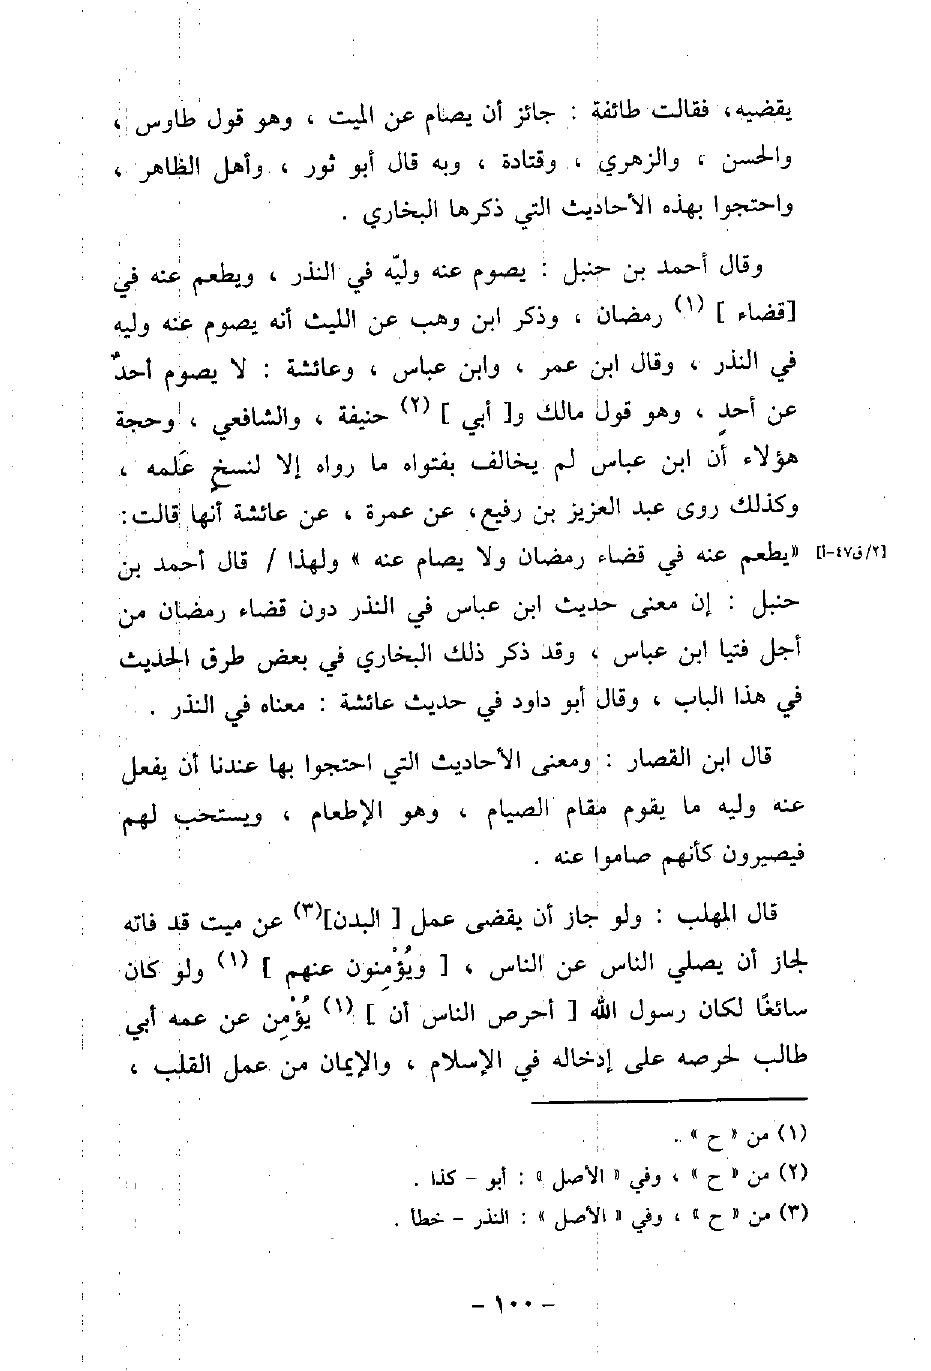 يقضيه، فقالت طائفة : جائز أن يصام عن الميت ، وهو قول طاوس ،
والحسن ، والزهري ، وقتادة ، وبه قال أبو ثور ، وأهل الظاهر ،
واحتجوا بهذه الأحاديث التي ذكرها البخاري .
وقال أحمد بن حنبل : يصوم عنه وليّه في النذر ، ويطعم عنه في
[قضاء ] (١) رمضان ، وذكر ابن وهب عن الليث أنه يصوم عنه وليه
في النذر ، وقال ابن عمر ، وابن عباس ، وعائشة : لا يصوم أحدٌ
عن أحدٍ ، وهو قول مالك و[ أبي ] (٢) حنيفة ، والشافعي ، وحجة
هؤلاء أن ابن عباس لم يخالف بفتواه ما رواه إلا لنسخٍ عَلمه ،
وكذلك روى عبد العزيز بن رفيع، عن عمرة ، عن عائشة أنها قالت:
«يطعم عنه في قضاء رمضان ولا يصام عنه » ولهذا / قال أحمد بن [٢/ق٤٧-أ]
حنبل : إن معنى حديث ابن عباس في النذر دون قضاء رمضان من
أجل فتيا ابن عباس ، وقد ذكر ذلك البخاري في بعض طرق الحديث
في هذا الباب ، وقال أبو داود في حديث عائشة : معناه في النذر .
قال ابن القصار : ومعنى الأحاديث التي احتجوا بها عندنا أن يفعل
عنه وليه ما يقوم مقام الصيام ، وهو الإطعام ، ويستحب لهم
فيصيرون كأنهم صاموا عنه .
قال المهلب : ولو جاز أن يقضى عمل [ البدن](٣) عن ميت قد فاته
لجاز أن يصلي الناس عن الناس ، [ ويُؤْمِنون عنهم ] (١) ولو كان
سائغًا لكان رسول الله [ أحرص الناس أن ] (١) يُؤْمِن عن عمه أبي
طالب لحرصه على إدخاله في الإسلام ، والإيمان من عمل القلب ،
(١) من « ح » .
(٢) من « ح » ، وفي « الأصل » : أبو – كذا .
(٣) من « ح » ، وفي « الأصل » : النذر – خطأ .
– ١٠٠ –